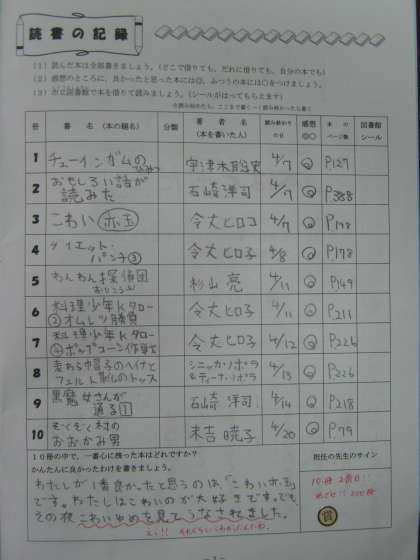 読書の記録
(1) 読んだ本は全部書きましょう。(どこで借りても、だれに借りても、自分の本でも)
(2) 感想のところに、良かったと思った本には◎、ふつうの本には○をつけましょう。
(3) 市立図書館で本を借りて読みましょう。(シールがはってもらえます)
冊 書名(本の題名) 分類 著者名(本を書いた人) 読み終わりの日 感想◎○ 本のページ数 図書館シール
1 チューインガムのひみつ 4/7 ◎ P127
2 おもしろい話が読みた 石崎洋司 4/7 ◎ P388
3 こわい赤玉 令丈ヒロコ 4/7 ◎ P198
4 ダイエットパンチ③ 令丈ヒロ子 4/8 ◎ P178
5 わんわん探偵団おかわり 杉山亮 4/11 ◎ P149
6 料理少年Kタロー②オムレツ勝負 令丈ヒロ子 4/11 ◎ P211
7 料理少年Kタロー④ポップコーン作戦 令丈ヒロ子 4/12 ◎ P226
8 麦わら帽子のヘイナとフェルト靴のトッス シニッカ・ノポラ&ティーナ・ノポラ 4/13 ◎ P226
9 黒魔女さんが通る① 石崎洋司 4/14 ◎ P218
10 ぞくぞく村のおおかみ男 末吉暁子 4/20 ◎ P79
10冊の中で、一番心に残った本はどれですか?
かんたんに良かったわけを書きましょう。
わたしが1番良かったと思うのは、「こわい赤玉」
です。わたしはこわいのが大好きです。でも、
その夜、こわいゆめを見てうなされました。
えぇ!!
担任の先生のサイン
10冊
めざせ!!
賞